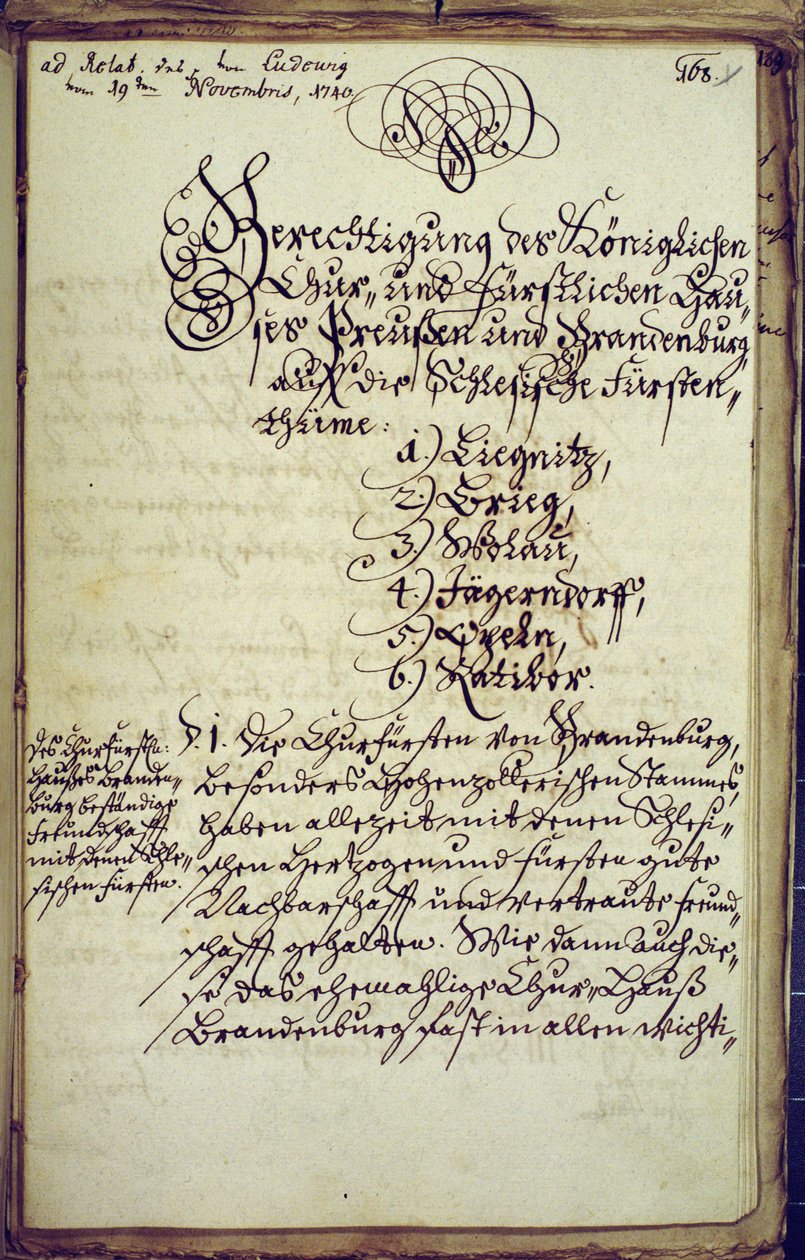 ad Relat. des von Ludewig
vom 19 ten Novembris, 1740.
168.
169
Berechtigung des Königlichen
Chur- und Fürstlichen Hau-
ses Preußen und Brandenburg
auff die Schlesische Fürsten-
thüme:
1.) Liegnitz,
2.) Brieg,
3.) Wolau,
4.) Jägerndorff,
5.) Opeln,
6.) Ratibor.
des Churfürstln:
Haußes Branden-
burg beständige
Freundschafft
mit denen Schle-
sischen Fürsten.
§. 1. Die Churfürsten von Brandenburg,
besonders Hohenzollerischen Stammes,
haben allezeit mit denen Schlesi-
schen Hertzogen und Fürsten gute
Nachbarschafft und vertraute Freund-
schafft gehalten. Wie dann auch die-
se das ehemahlige Chur-Hauß
Brandenburg fast in allen wichti-